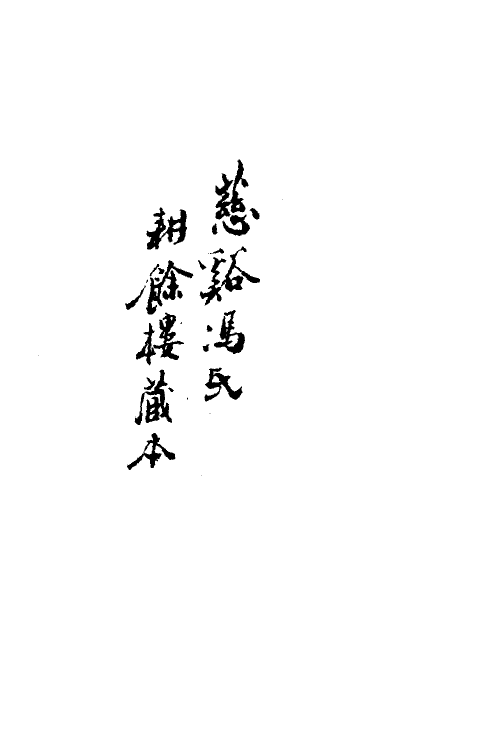 慈谿馮氏
耕餘樓藏本